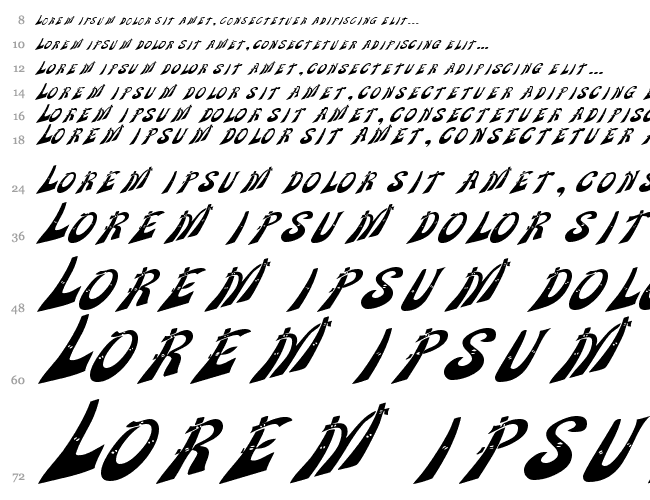 8 LOREM IPSUM DOLOR SIT AMET, CONSECTETUER ADIPISCING ELIT...
10 LOREM IPSUM DOLOR SIT AMET, CONSECTETUER ADIPISCING ELIT...
12 LOREM IPSUM DOLOR SIT AMET, CONSECTETUER ADIPISCING ELIT...
14 LOREM IPSUM DOLOR SIT AMET, CONSECTETUER ADIPISCING E
16 LOREM IPSUM DOLOR SIT AMET, CONSECTETUER ADIPISC
18 LOREM IPSUM DOLOR SIT AMET, CONSECTETUER A
24 LOREM IPSUM DOLOR SIT AMET, CONS
36 LOREM IPSUM DOLOR SIT
48 LOREM IPSUM DOLO
60 LOREM IPSUM
72 LOREM IPSU